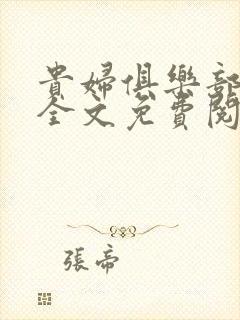 貴婦俱樂部
全文免費閱
張帝